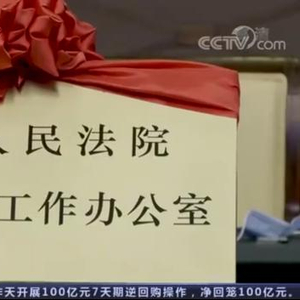 CCTV.com
人民法院
工作办公室
昨天开展100亿元7天期逆回购操作，净回笼100亿元。